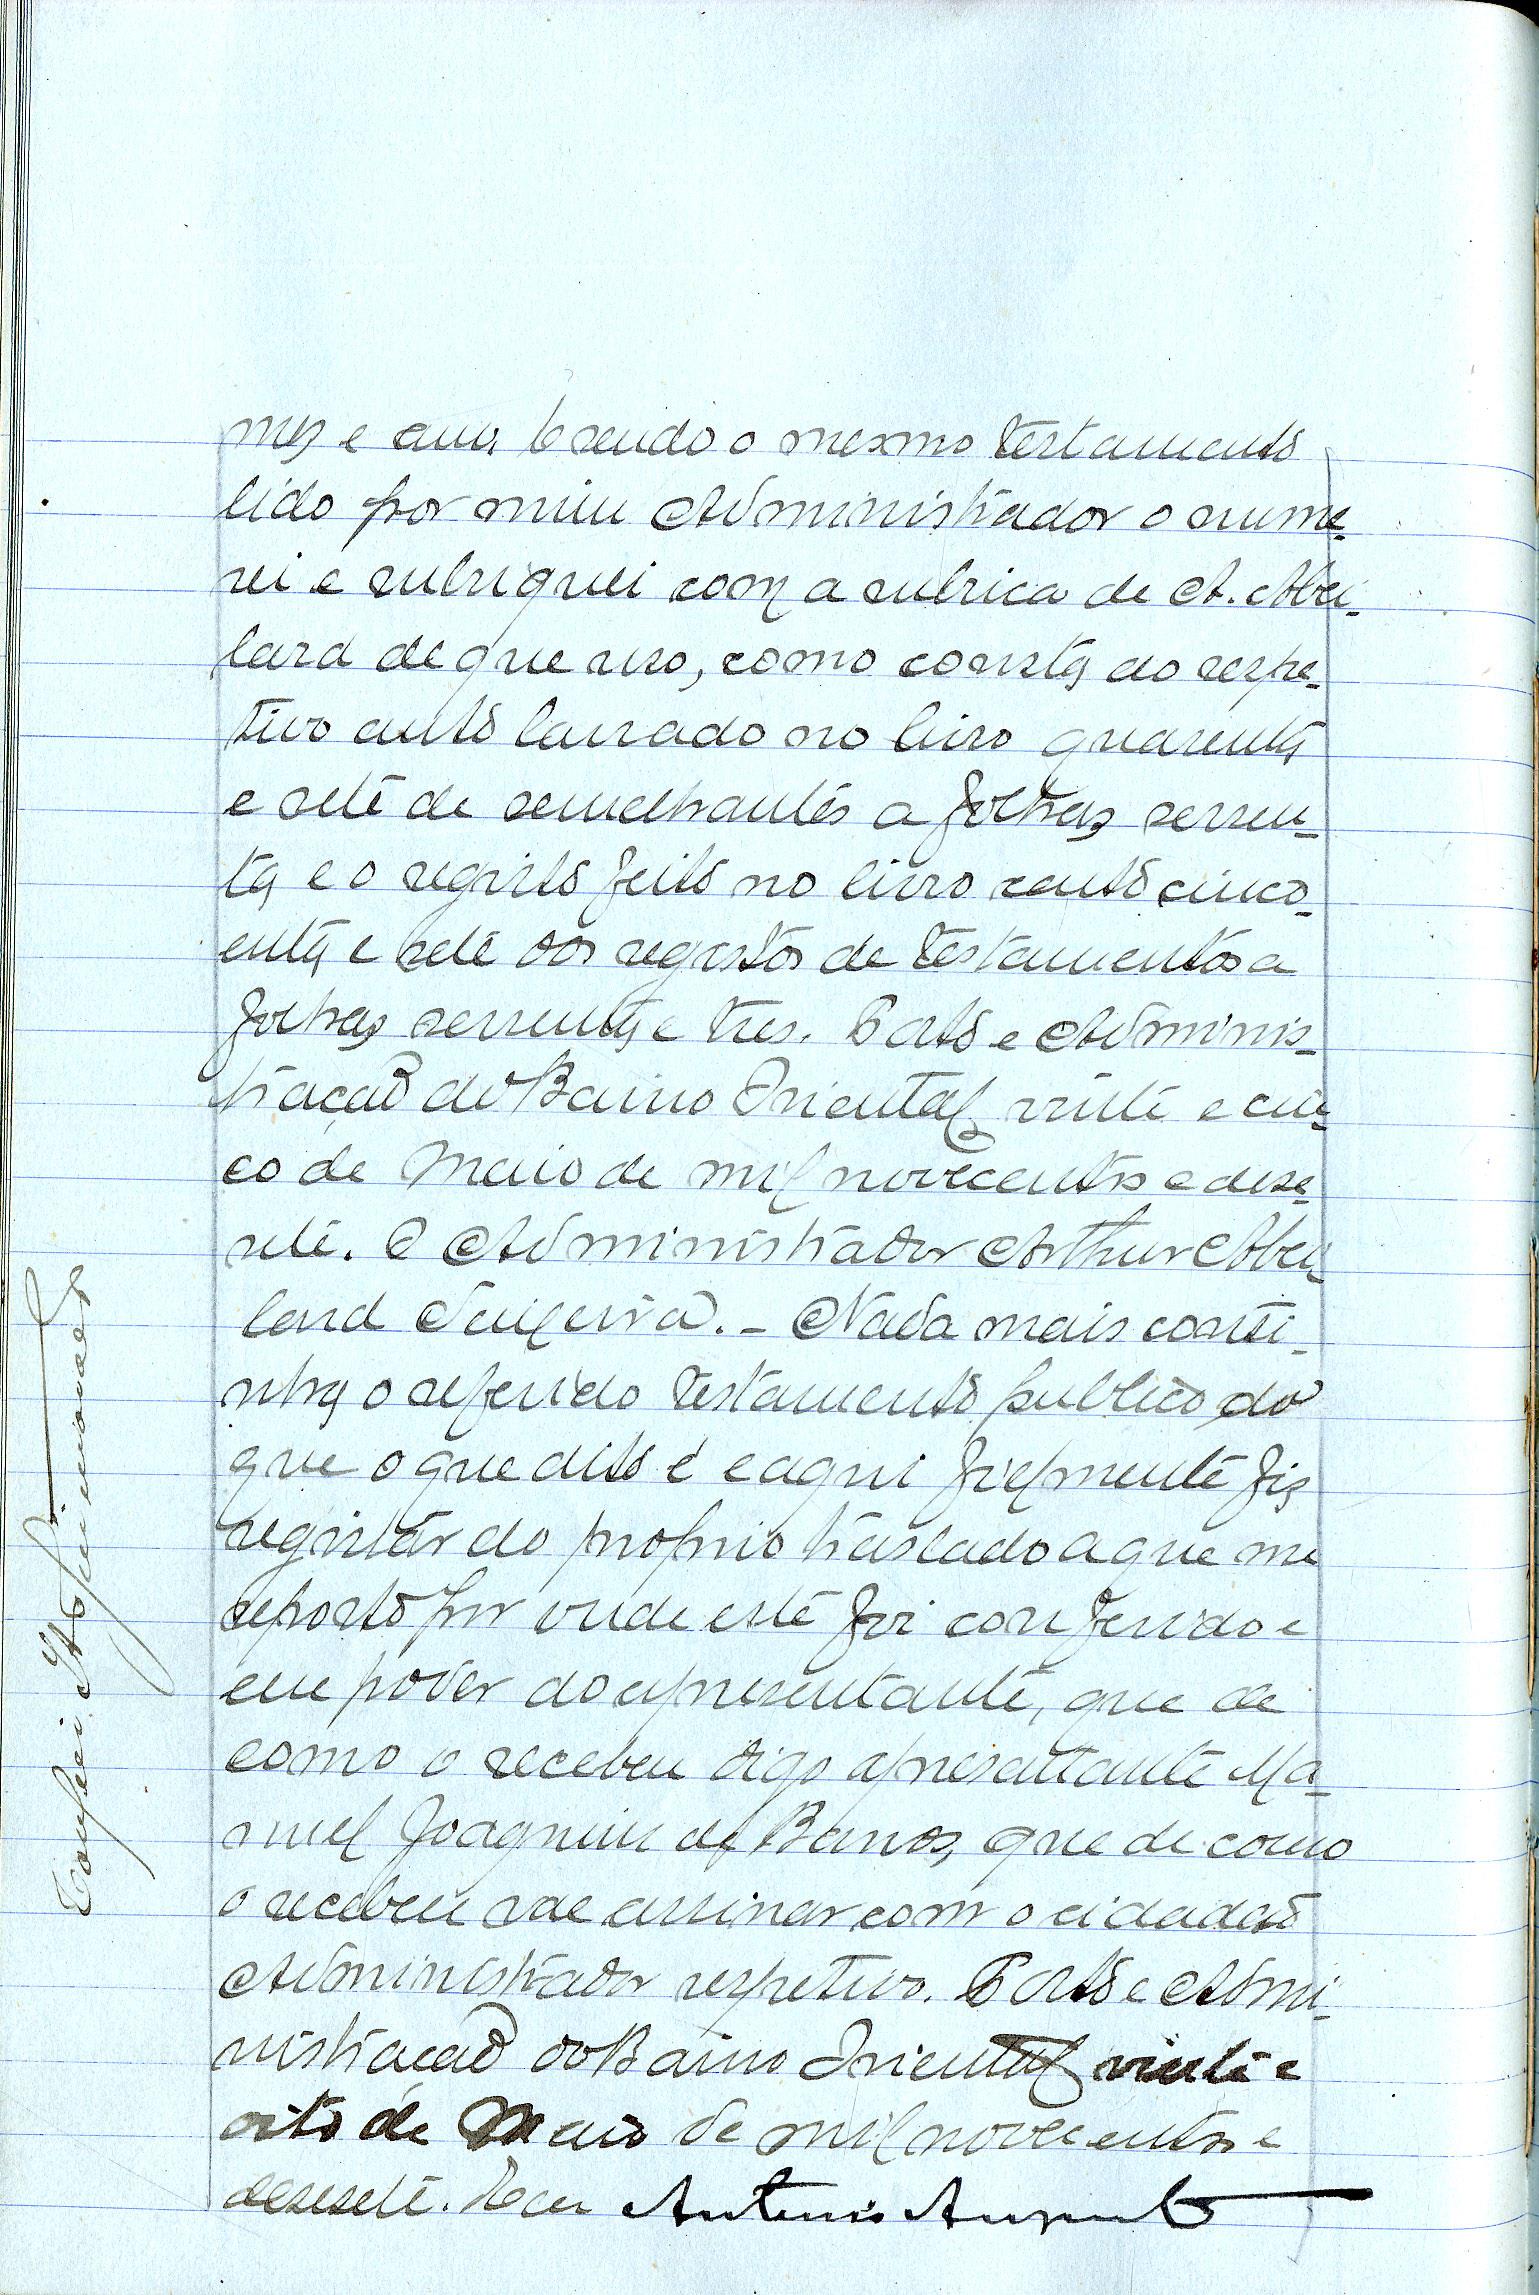 mez e ano. E sendo o mesmo testamento
lido por mim Administrador o nume-
rei e rubriquei com a rubrica de A. Abei-
lard de que uso, como consta do respe-
tivo auto lavrado no livro quarenta
e sete de semelhantes a folhas sessen-
ta e o registo feito no livro cento cinco-
enta e sete dos registos de testamentos a
folhas sessenta e tres. Porto e Adminis-
tração do Bairro Oriental, vinte e cin-
co de Maio de mil novecentos e deze-
sete. O Administrador Arthur Abei-
lard Teixeira. - Nada mais conti-
nha o referido testamento publico do
que o que dito é e aqui fielmente fiz
registar do proprio traslado a que me
reporto por onde este foi conferido e
em poder do apresentante, que de
como o recebeu digo apresentante Ma-
nuel Joaquim de Barros, que de como
o recebeu vae assinar com o cidadão
Administrador respetivo. Porto e Admi-
nistração do Bairro Oriental vinte e
oito de Maio de mil novecentos e
dezesete. E eu Antonio Augusto
Conferi